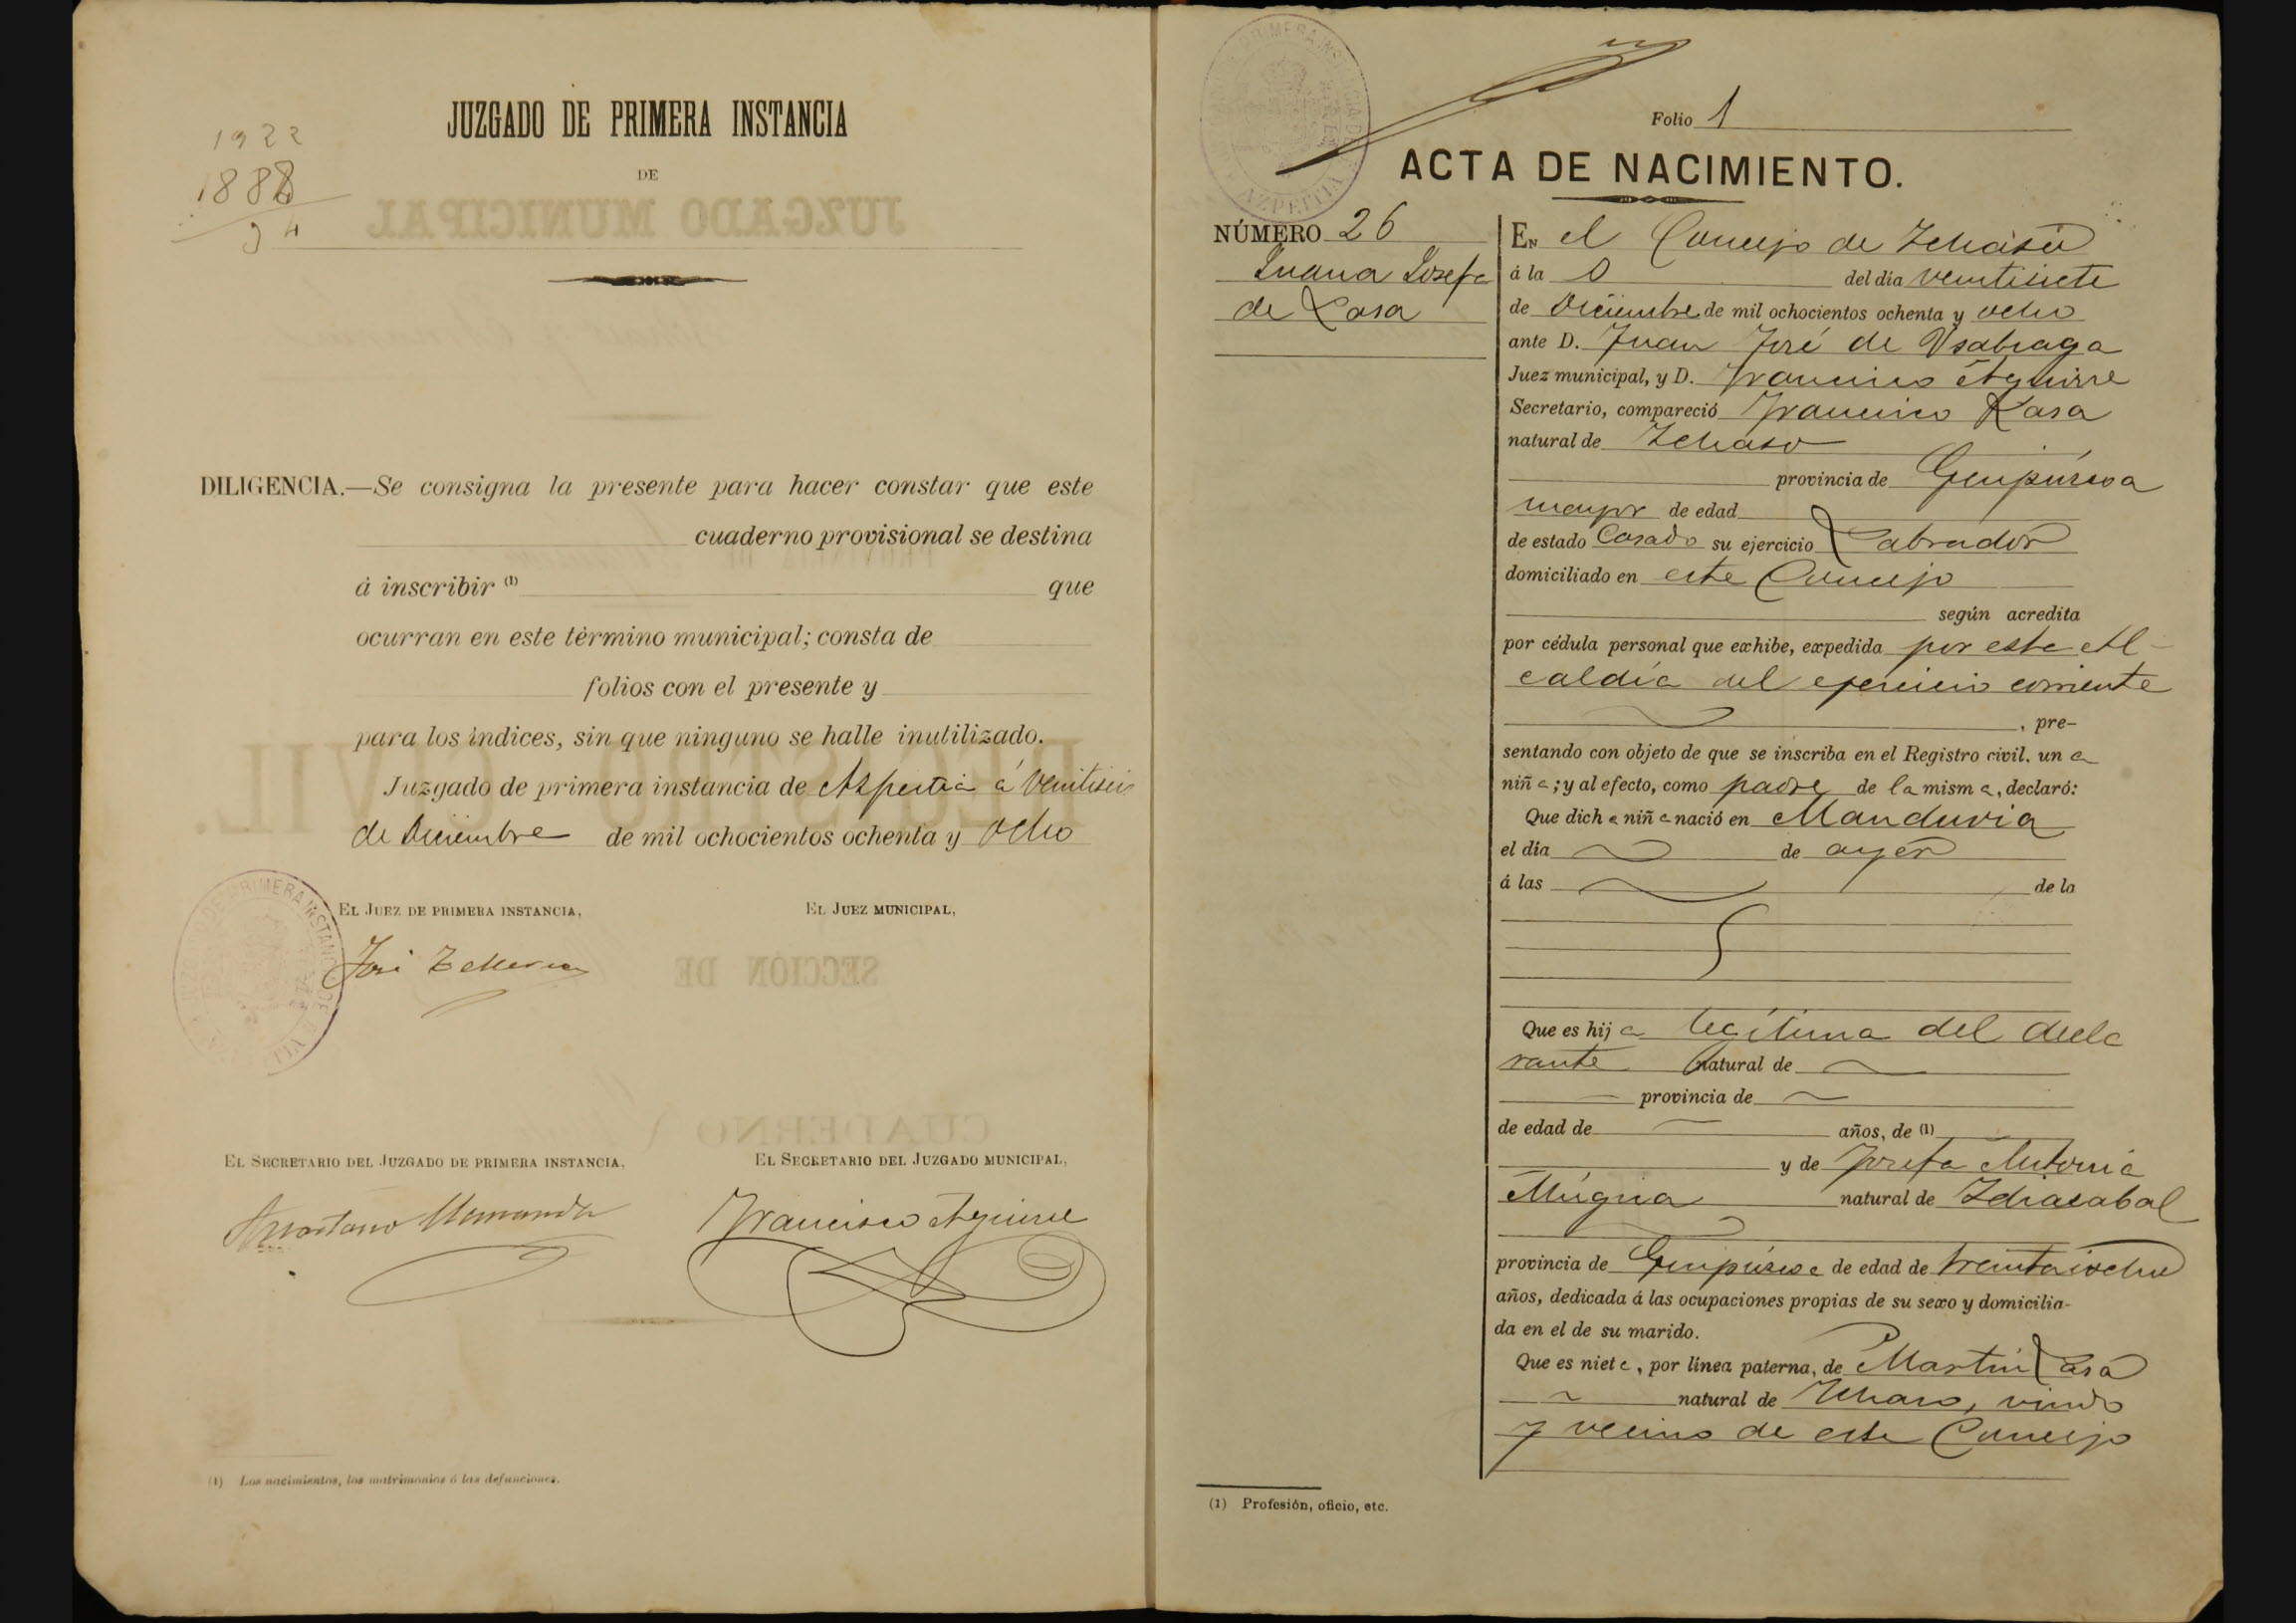 1922
1888
34
JUZGADO DE PRIMERA INSTANCIA
DE
DILIGENCIA.—Se consigna la presente para hacer constar que este
cuaderno provisional se destina
á inscribir (1) que
ocurran en este término municipal; consta de
folios con el presente y
para los índices, sin que ninguno se halle inutilizado.
Juzgado de primera instancia de Azpeitia á veintiseis
de Diciembre de mil ochocientos ochenta y ocho
EL JUEZ DE PRIMERA INSTANCIA,
EL JUEZ MUNICIPAL,
José
EL SECRETARIO DEL JUZGADO DE PRIMERA INSTANCIA,
EL SECRETARIO DEL JUZGADO MUNICIPAL,
Francisco Aguirre
(1) Los nacimientos, los matrimonios ó las defunciones.
AZPEITIA
Folio 1
ACTA DE NACIMIENTO.
NÚMERO 26
Juana Josefa
de Lasa
EN el Concejo de Ichaso
á la 0 del día veintisiete
de Diciembre de mil ochocientos ochenta y ocho
ante D. Juan José de Usabiaga
Juez municipal, y D. Francisco Aguirre
Secretario, compareció Francisco Lasa
natural de Ichaso
provincia de Guipúzcoa
mayor de edad
de estado Casado su ejercicio Labrador
domiciliado en este Concejo
según acredita
por cédula personal que exhibe, expedida por esta Al-
caldía del ejercicio corriente
, pre-
sentando con objeto de que se inscriba en el Registro civil, un a
niña; y al efecto, como padre de la misma, declaró:
Que dicha niña nació en Manduvia
el día de ayer
á las de la
Que es hija legítima del decla
rante natural de
provincia de
de edad de años, de (1)
y de Josefa Antonia
Múgica natural de Idiazabal
provincia de Guipúzcoa de edad de treintaiocho
años, dedicada á las ocupaciones propias de su sexo y domicilia-
da en el de su marido.
Que es nieta, por línea paterna, de Martin Lasa
natural de Ichaso, viudo
y vecino de este Concejo
(1) Profesión, oficio, etc.